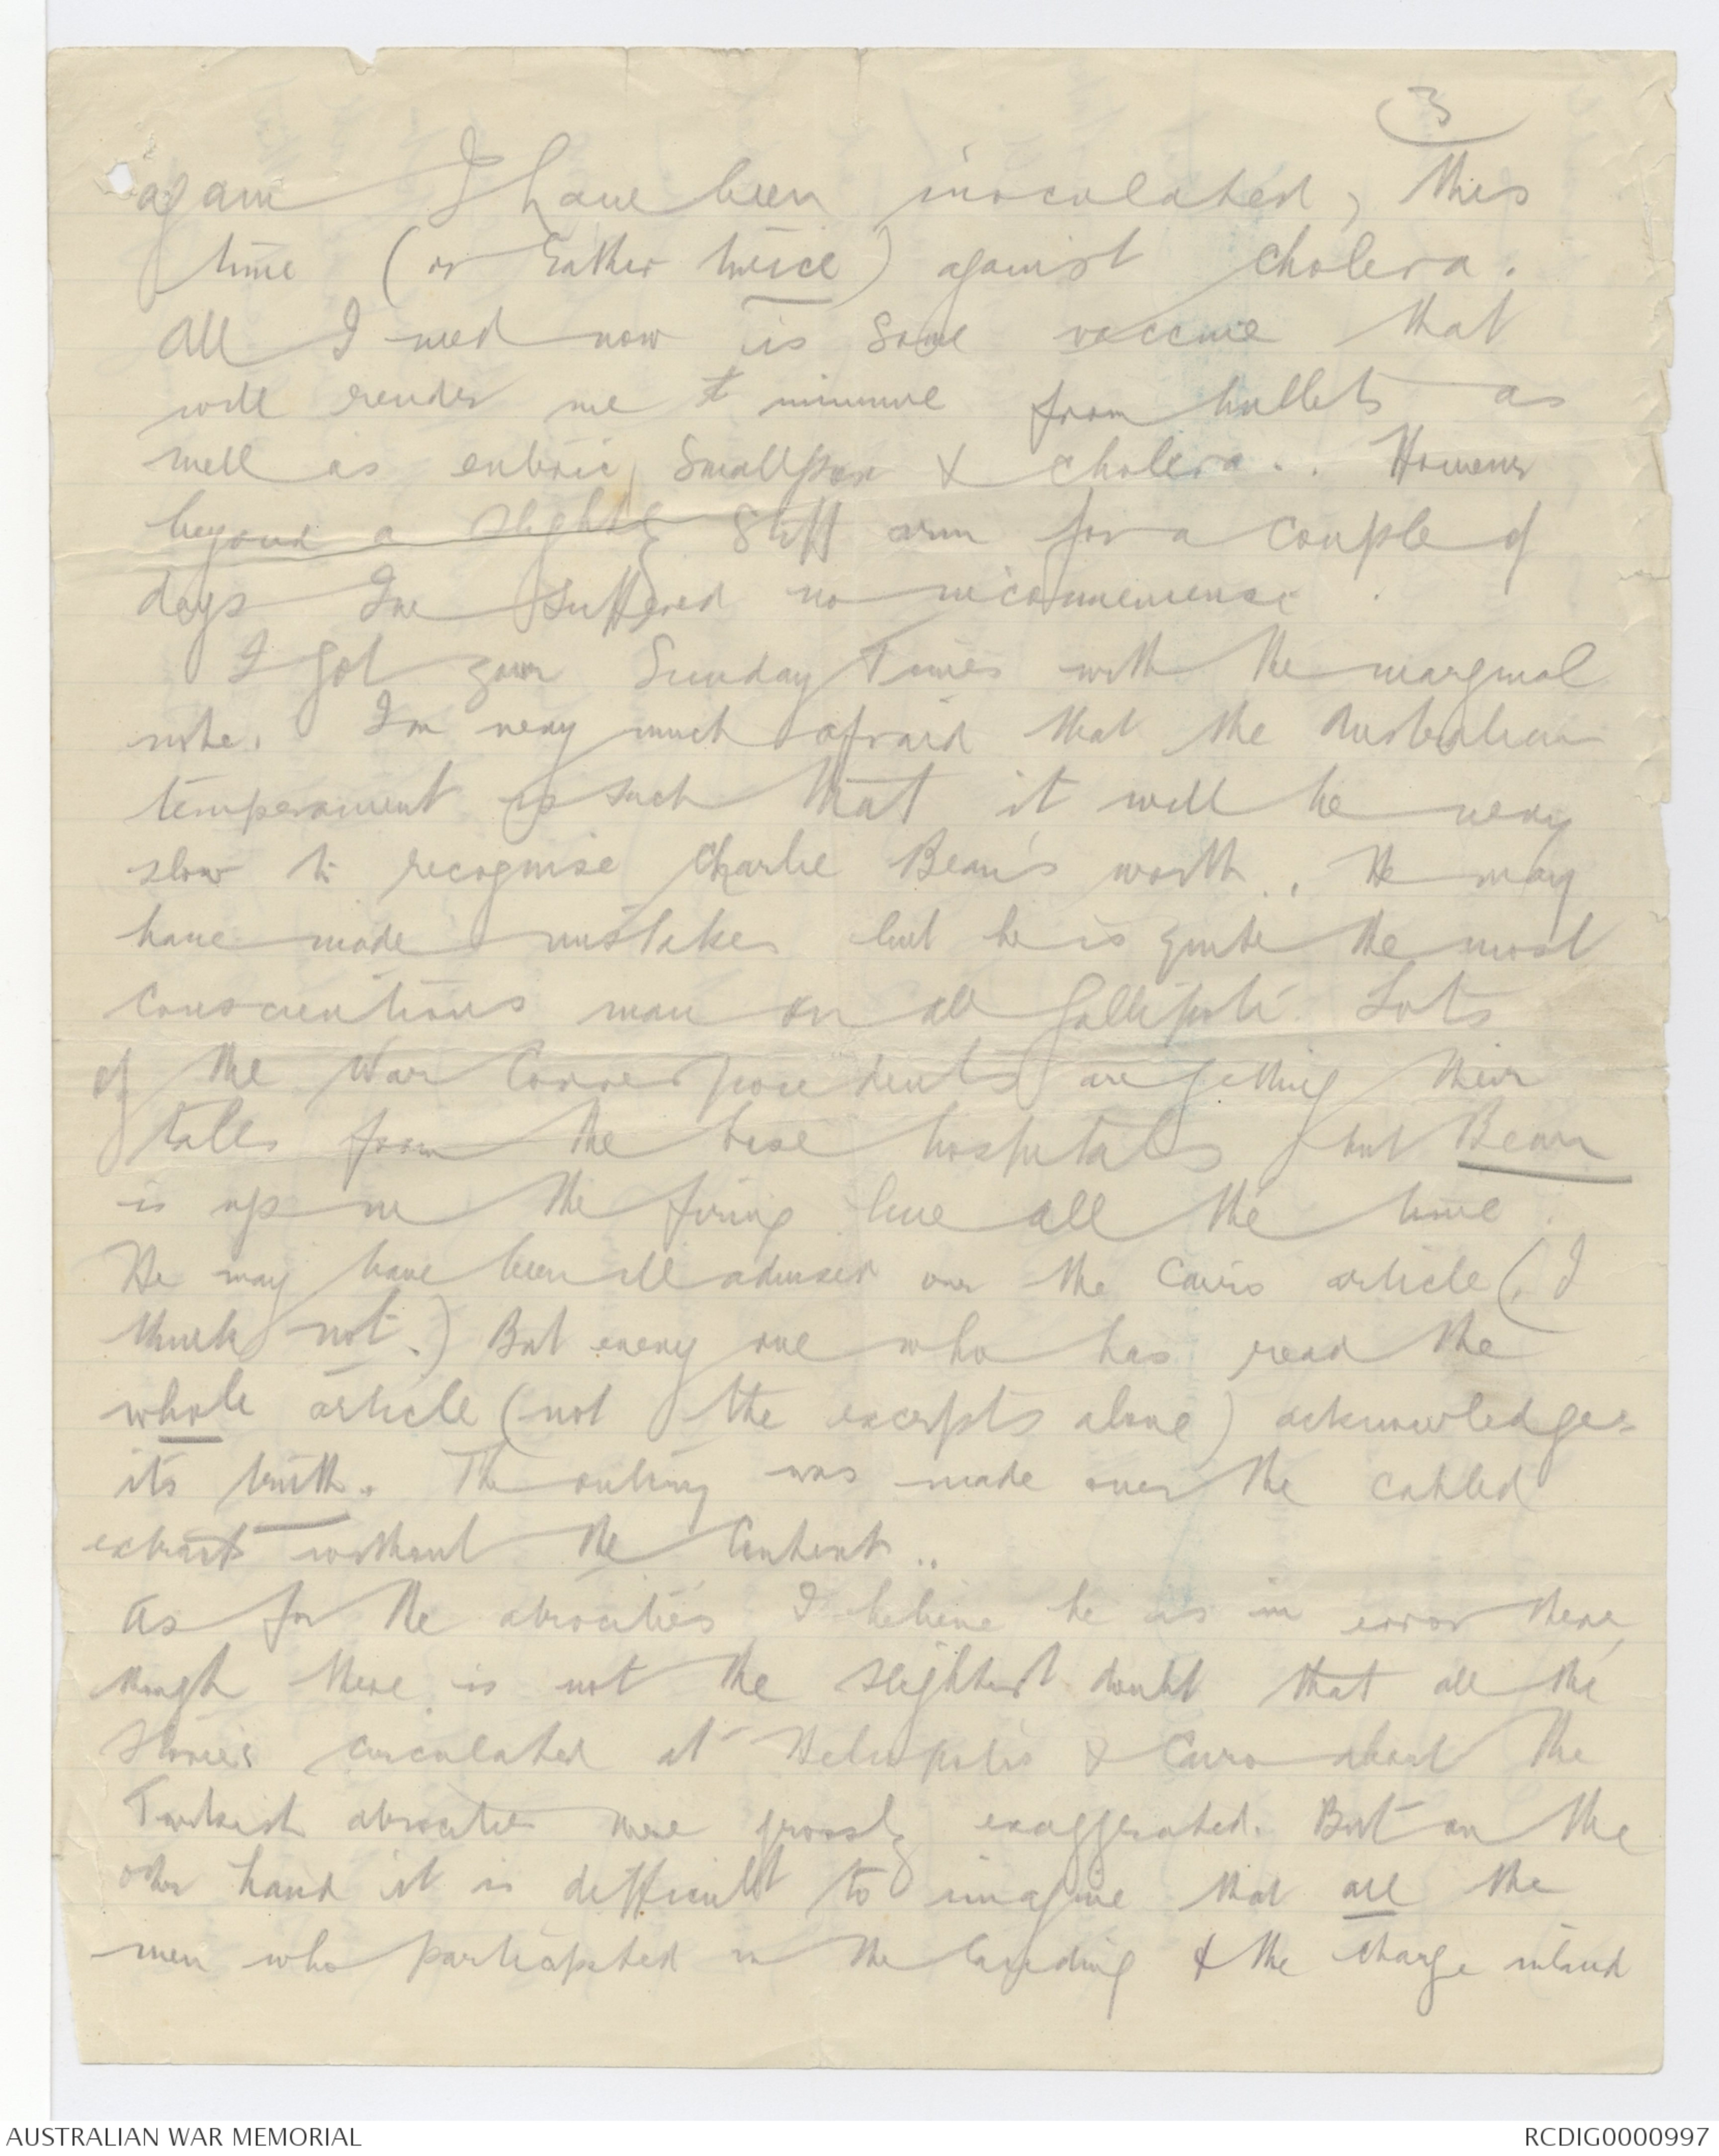 3
again I have been inoculated, this
time (or rather twice) against cholera.
All I need now is some vaccine that
will render me immune from bullets as
well as enteric, smallpox & cholera.. However
beyond a slightly stiff arm for a couple of
days I've suffered no inconvenience.
I got your Sunday Times with the marginal
note. I'm very much afraid that the Australian
temperament is such that it will be very
slow to recognise Charlie Bean's worth.. He may
have made mistakes but he is quite the most
conscientious man on all Gallipoli. Lots
of the War Correspondents are getting their
tales from the base hospitals but Bean
is up in the firing line all the time.
He may have been ill advised over the Cairo article (I
think not.) But every one who has read the
whole article (not the excerpts alone) acknowledges
its truth. The outcry was made over the cabled
extracts without the context..
As for the atrocities I believe he is in error there,
though there is not the slightest doubt that all the
stories circulated at Heliopolis & Cairo about the
Turkish atrocities were grossly exaggerated. But on the
other hand it is difficult to imagine that all the
men who participated in the landing & the charge inland
AUSTRALIAN WAR MEMORIAL
RCDIG0000997